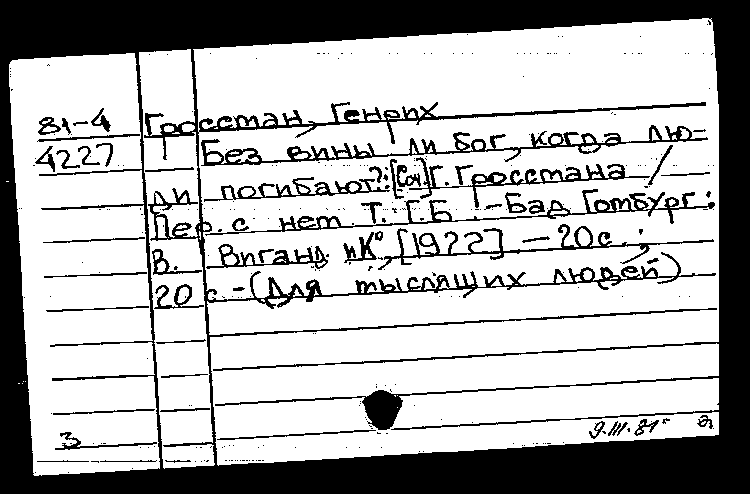 81-4 Гроссман, Генрих
4227 Без вины ли бог, когда лю-
ди погибают?: [Соч.] Г. Гроссмана /
Пер. с нем. Т. Г.Б. - Бад Гомбург:
В. Виганд и К°, [1922]. - 20 с.;
20 с. - (Для мыслящих людей).
3 9.III.81г